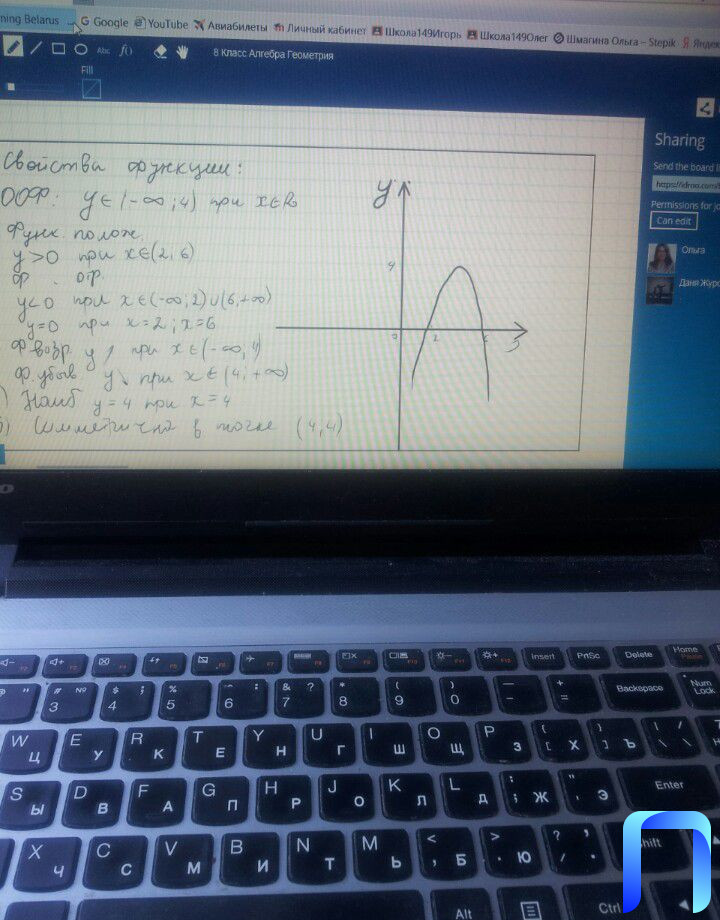 ning Belarus
Google
YouTube
Авиабилеты
Личный кабинет
Школа149Игорь
Школа149Олег
Шмагина Ольга – Stepik
Янде
Abc
f()
8 Класс Алгебра Геометрия
Fill
Sharing
Send the board li
https://idroo.com
Permissions for jo
Can edit
Ольга
Даня Журо
Свойства функции:
ООФ: y∈(-∞;4) при x∈R
Функ. полож.
y>0 при x∈(2;6)
Ф. отр.
y<0 при x∈(-∞;2)∪(6;+∞)
y=0 при x=2; x=6
Ф. возр. y ↗ при x∈(-∞,4)
Ф. убыв. y ↘ при x∈(4,+∞)
) Наиб y=4 при x=4
) Симметрична в точке (4,4)
y
4
0
2
6
F2 F3 F4 F5 F6 F7 F8 F9 F10 F11 F12 Insert PrtSc Delete Home Pause
" # № 3 $ ; 4 % 5 ^ : 6 & ? 7 * 8 ( 9 ) 0 — - + = Backspace Num Lock
W Ц E У R К T Е Y Н U Г I Ш O Щ P З { [ Х } ] Ъ | \ /
S Ы D В F А G П H Р J О K Л L Д : ; Ж " ' Э Enter
X Ч C С V М B И N Т M Ь < , Б > . Ю ? / , . Shift
Alt Ctrl